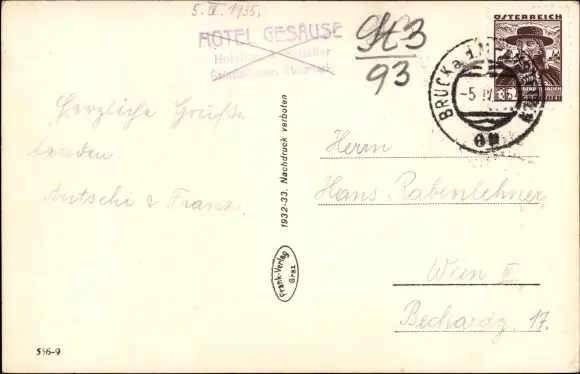 5. IV. 1935.
HOTEL GESÄUSE
St3
93
ÖSTERREICH
BRUCK a. d.
-5 IV
35
Herzliche Grüße
senden
Putschi & Franz
1932-33. Nachdruck verboten
Frank-Verlag
Graz
Herrn
Hans Rabenlehner
Wien III
Bechardg. 17.
556-9